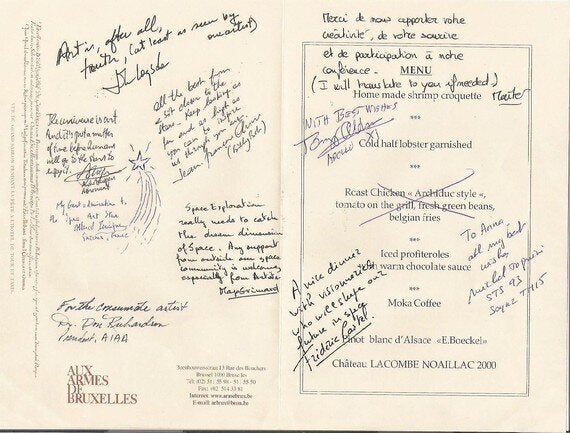 Art is, after all,
truth, (at least as seen by
one artist)
all the best from
a sit down to the
stars. keep looking as
far and as high as
you can to inspire
us through your
Jean-François Clervoy
The universe is art
And it's just a matter
of time before humans
will go to the stars to
enjoy it.
My great admiration to
the Space Art Star
Space Exploration
really needs to catch
the dream dimension
of Space. Any support
from outside our space
community is welcome,
especially from Artists
Max Grimard
For the consumate artist
By: Don Richardson
President, AIAA
AUX
ARMES
DE
BRUXELLES
Beenhouwersstraat 13 Rue des Bouchers
Brussel 1000 Bruxelles
Tél: (02) 51 . 55 - 98 - 51 . 55 - 50
Fax: +02. 514 33 81
Internet: www.armebrux.be
E-mail: arbrux@beon.be
Merci de nous apporter votre
créativité, de votre sourire
et de participation à notre
conférence.
(I will translate to you if needed!)
MENU
Home made shrimp croquette
***
WITH BEST WISHES
APOLLO XI
Cold half lobster garnished
***
Roast Chicken « Archiduc style «,
tomato on the grill, fresh green beans,
belgian fries
***
Iced profiteroles
warm chocolate sauce
***
Moka Coffee
***
To Anna
all my best
wishes
Michel Tognini
STS 93
Soyuz TM15
A nice dinner
with visionaries
who will shape our
future in space
Frédéric Castel
Pinot blanc d'Alsace «E.Boeckel»
Château LACOMBE NOAILLAC 2000